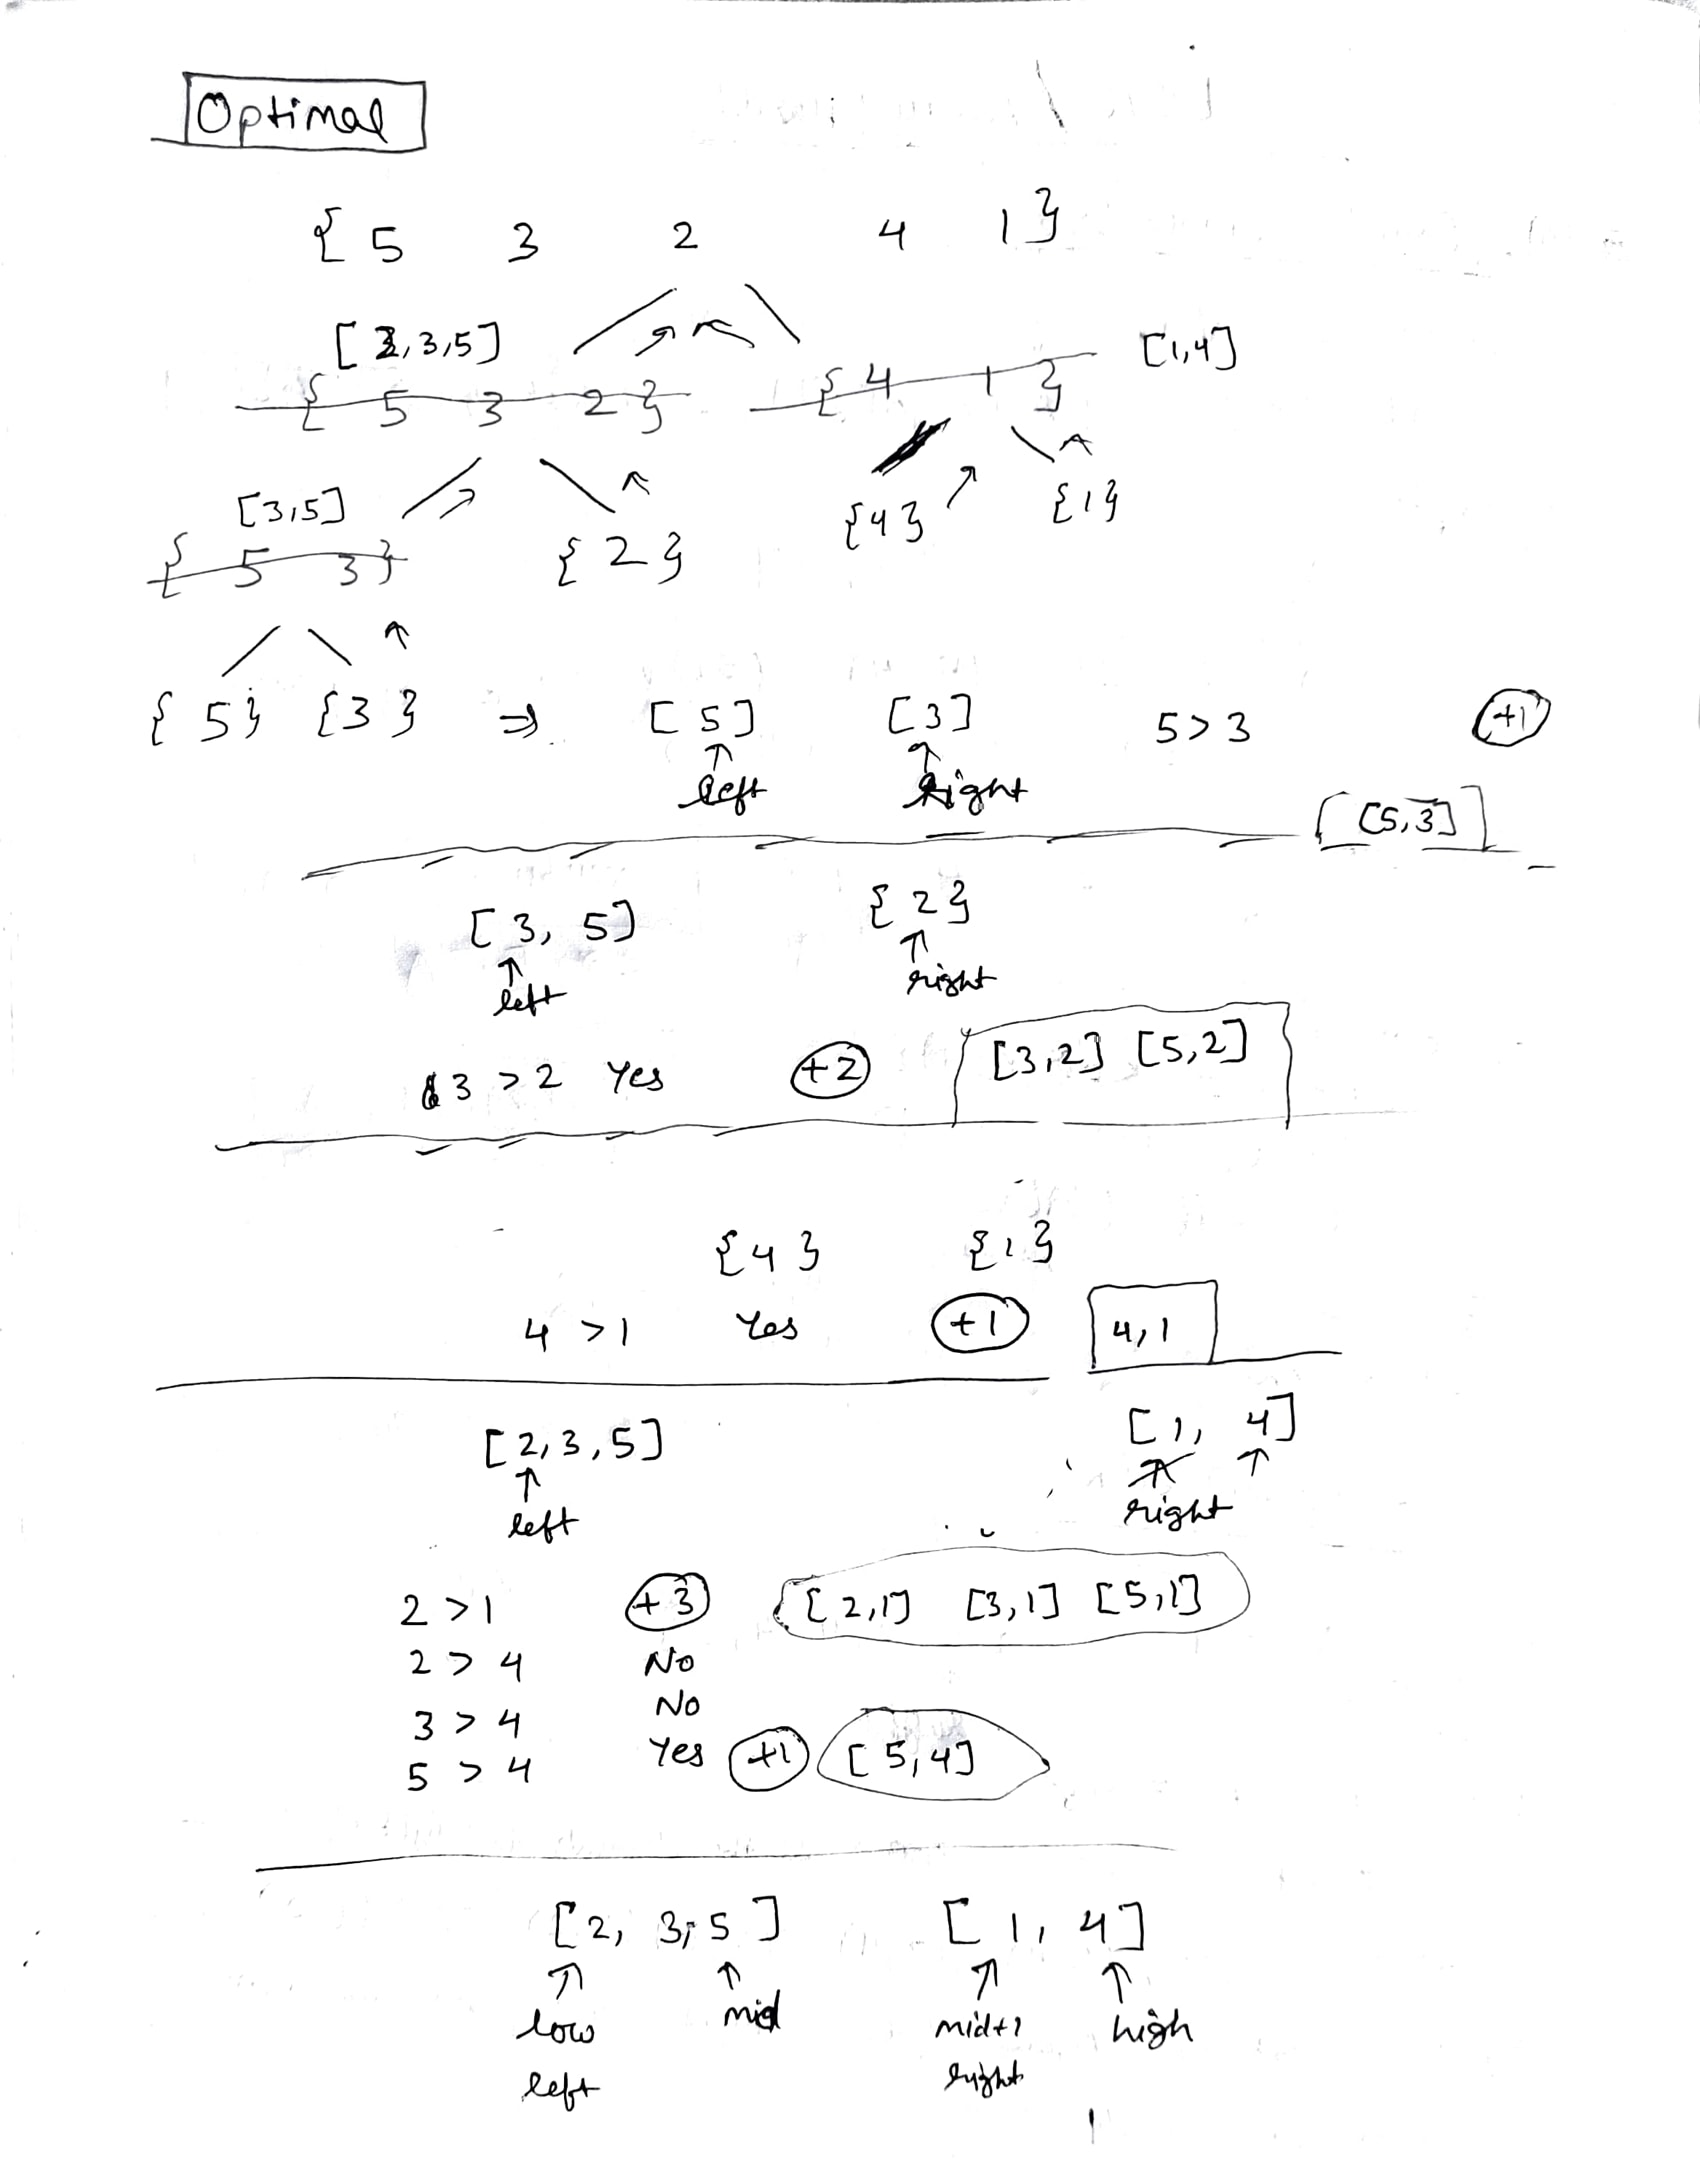 Optimal
{ 5 3 2 4 1 }
[ 2, 3, 5 ] [1, 4]
{ 5 3 2 } { 4 1 }
[3, 5]
{4} {1}
{ 5 3 } { 2 }
{ 5 } { 3 } ⇒ [ 5 ] [ 3 ] 5 > 3 +1
↑ ↑
left Right
[ [5, 3] ]
[ 3, 5 ] { 2 }
↑ ↑
left right
3 > 2 Yes +2 [3, 2] [5, 2]
{ 4 } { 1 }
4 > 1 Yes +1 4, 1
[ 2, 3, 5 ] [ 1, 4 ]
↑ ↑ ↑
left right
2 > 1 +3 [ 2, 1 ] [3, 1] [5, 1]
2 > 4 No
3 > 4 No
5 > 4 Yes +1 [ 5, 4 ]
[ 2, 3, 5 ] [ 1, 4 ]
↑ ↑ ↑ ↑
low mid mid+1 high
left right